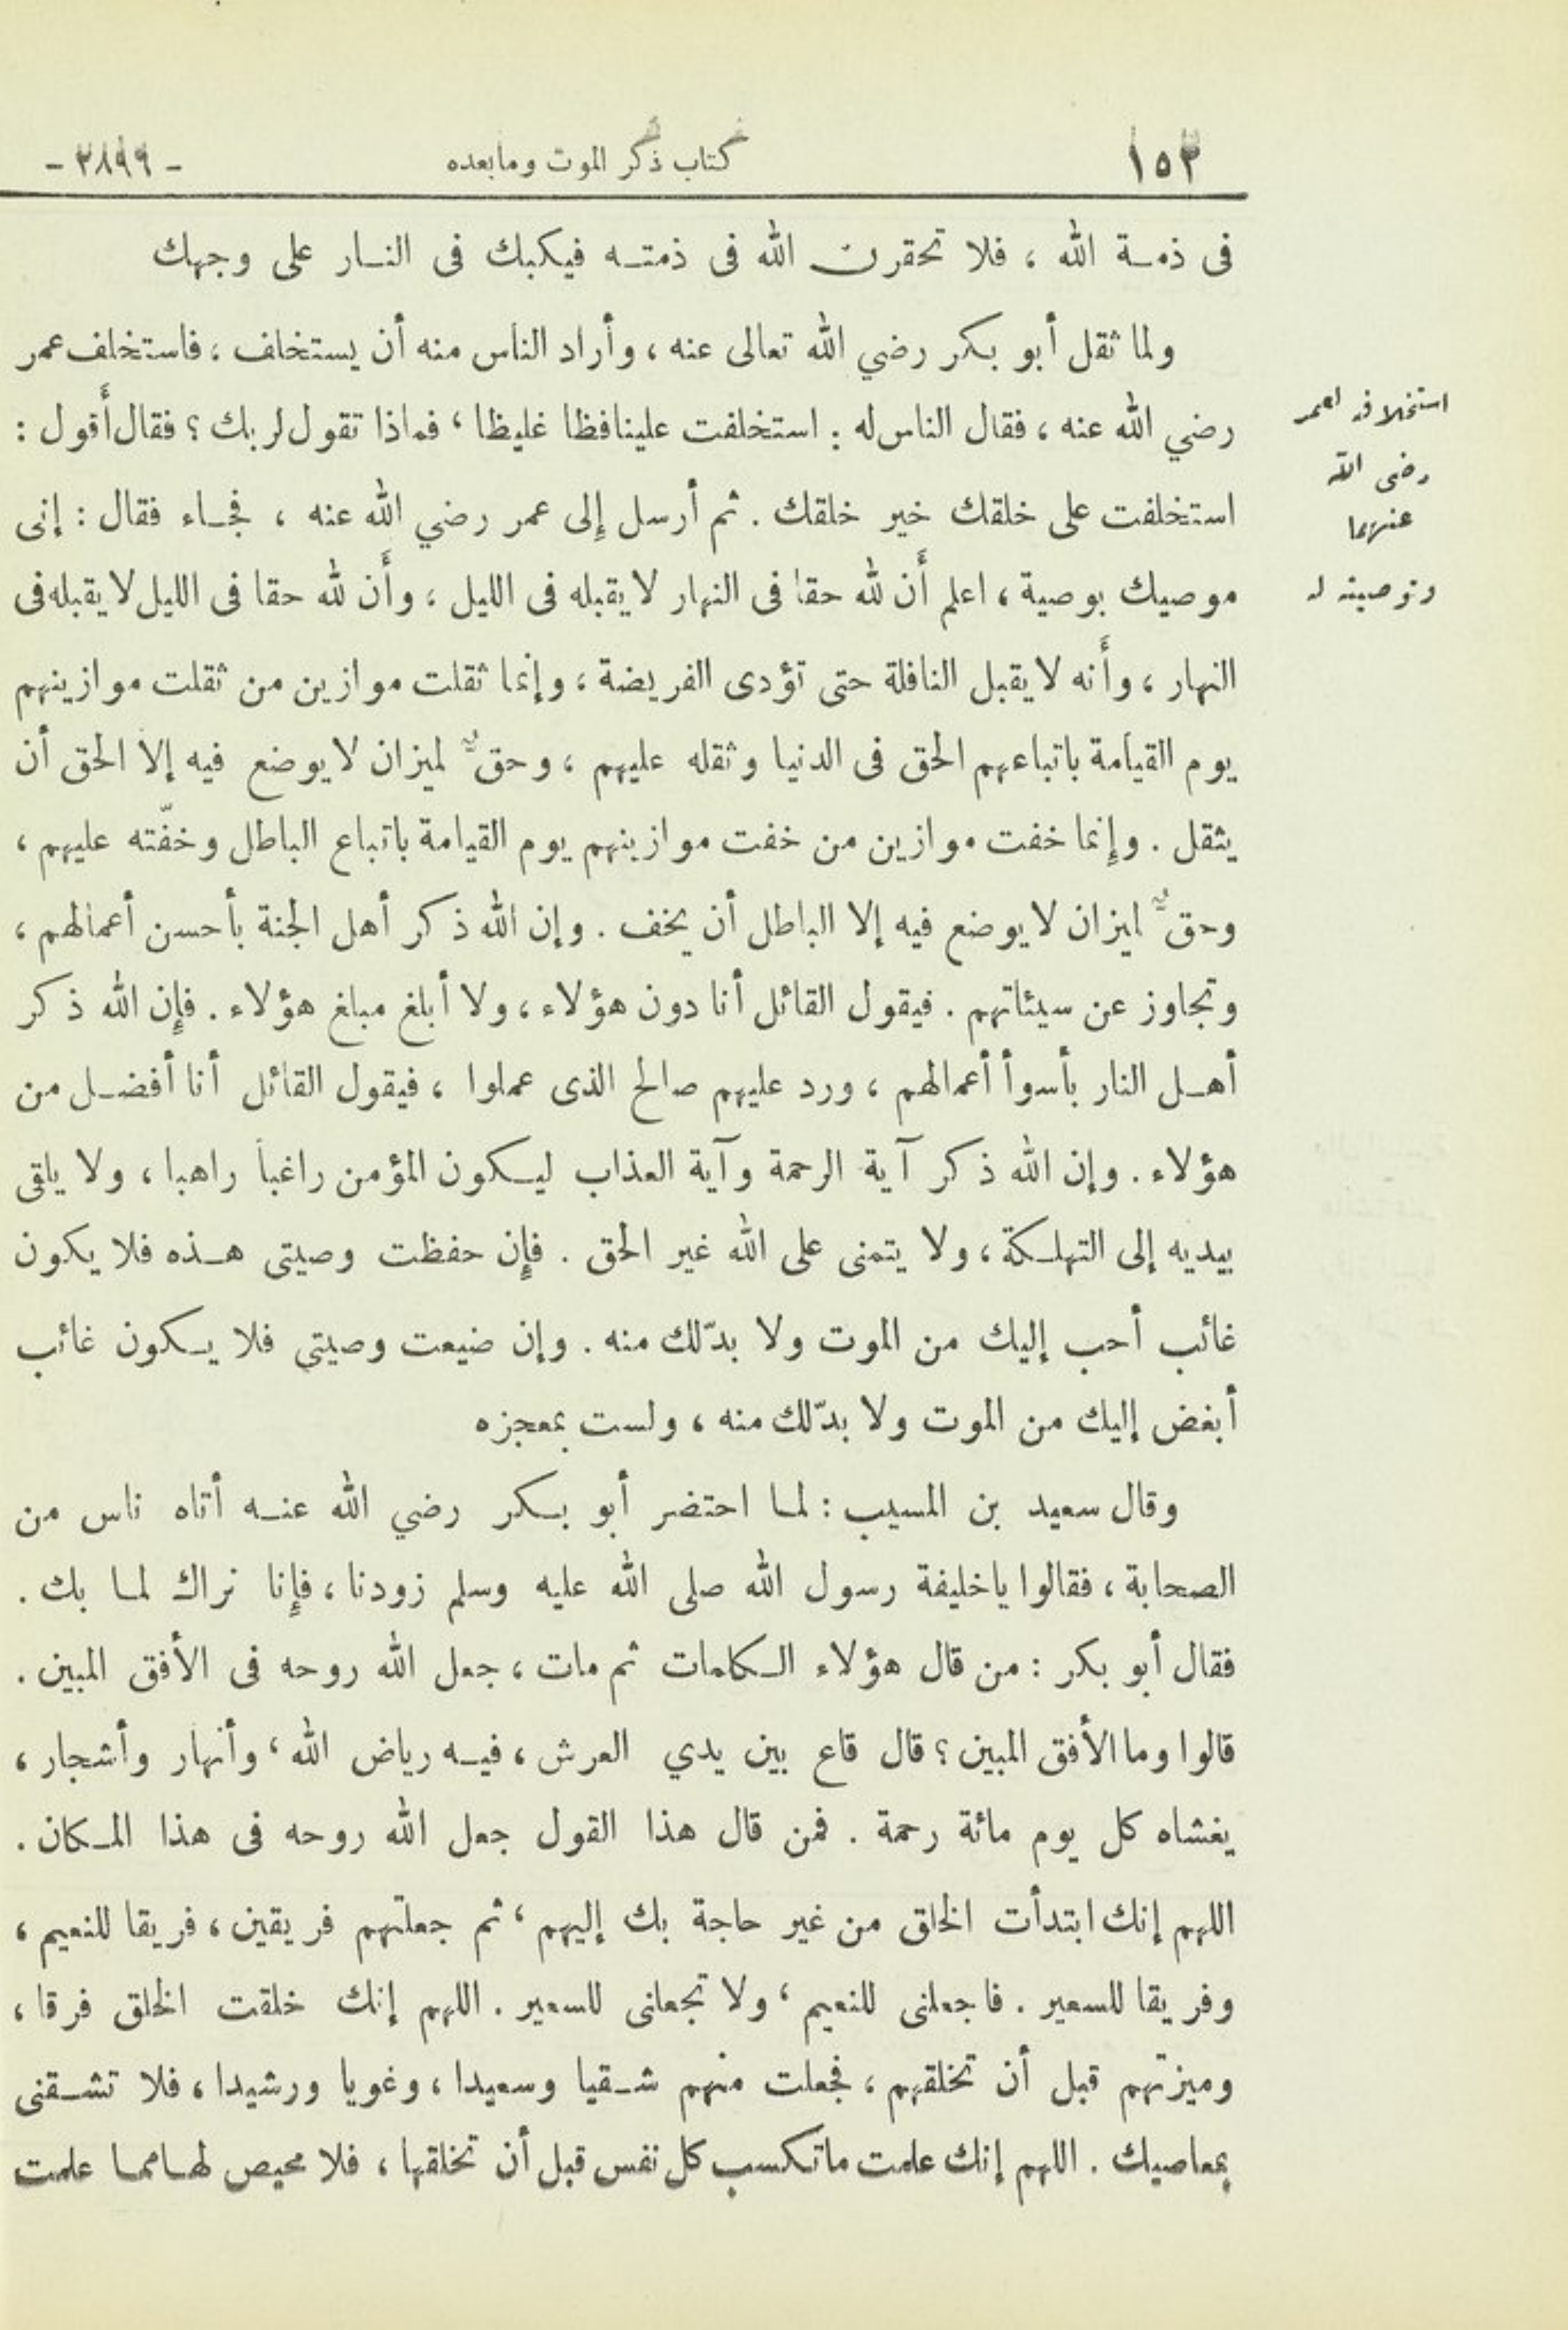 ١٥٣ كتاب ذكر الموت ومابعده - ٢٨٩٩ -
فى ذمة الله ، فلا تحقرن الله فى ذمته فيكبك فى النار على وجهك
ولما ثقل أبو بكر رضي الله تعالى عنه ، وأراد الناس منه أن يستخلف ، فاستخلف عمر
رضي الله عنه ، فقال الناس له : استخلفت علينا فظا غليظا ، فماذا تقول لربك ؟ فقال أَقول :
استخلفت على خلقك خير خلقك . ثم أرسل إِلى عمر رضي الله عنه ، فجاء فقال : إنى
موصيك بوصية ، اعلم أَن لله حقا فى النهار لا يقبله فى الليل ، وأَن لله حقا فى الليل لا يقبله فى
النهار ، وأَنه لا يقبل النافلة حتى تؤدى الفريضة ، وإنما ثقلت موازين من ثقلت موازينهم
يوم القيامة باتباعهم الحق فى الدنيا وثقله عليهم ، وحقٌّ لميزان لا يوضع فيه إلا الحق أن
يثقل . وإِنما خفت موازين من خفت موازينهم يوم القيامة باتباع الباطل وخفّته عليهم ،
وحقٌّ لميزان لا يوضع فيه إلا الباطل أن يخف . وإن الله ذكر أهل الجنة بأحسن أعمالهم ،
وتجاوز عن سيئاتهم . فيقول القائل أنا دون هؤلاء ، ولا أبلغ مبلغ هؤلاء . فإِن الله ذكر
أهل النار بأسوأ أعمالهم ، ورد عليهم صالح الذى عملوا ، فيقول القائل أنا أفضل من
هؤلاء . وإن الله ذكر آية الرحمة وآية العذاب ليكون المؤمن راغبا راهبا ، ولا يلقى
بيديه إلى التهلكة ، ولا يتمنى على الله غير الحق . فإِن حفظت وصيتى هذه فلا يكون
غائب أحب إليك من الموت ولا بدّ لك منه . وإن ضيعت وصيتي فلا يكون غائب
أبغض إليك من الموت ولا بدّ لك منه ، ولست بمعجزه
وقال سعيد بن المسيب : لما احتضر أبو بكر رضي الله عنه أتاه ناس من
الصحابة ، فقالوا ياخليفة رسول الله صلى الله عليه وسلم زودنا ، فإِنا نراك لما بك .
فقال أبو بكر : من قال هؤلاء الكلمات ثم مات ، جعل الله روحه فى الأفق المبين .
قالوا وما الأفق المبين ؟ قال قاع بين يدي العرش ، فيه رياض الله ، وأنهار وأشجار ،
يغشاه كل يوم مائة رحمة . فمن قال هذا القول جعل الله روحه فى هذا المكان .
اللهم إنك ابتدأت الخلق من غير حاجة بك إليهم ، ثم جعلتهم فريقين ، فريقا للنعيم ،
وفريقا للسعير . فاجعلنى للنعيم ، ولا تجعلنى للسعير . اللهم إنك خلقت الخلق فرقا ،
وميزتهم قبل أن تخلقهم ، فجعلت منهم شقيا وسعيدا ، وغويا ورشيدا ، فلا تشقنى
بمعاصيك . اللهم إنك علمت ماتكسب كل نفس قبل أن تخلقها ، فلا محيص لها مما علمت
استخلافه لعمر
رضى الله
عنهما
وتوصيته له